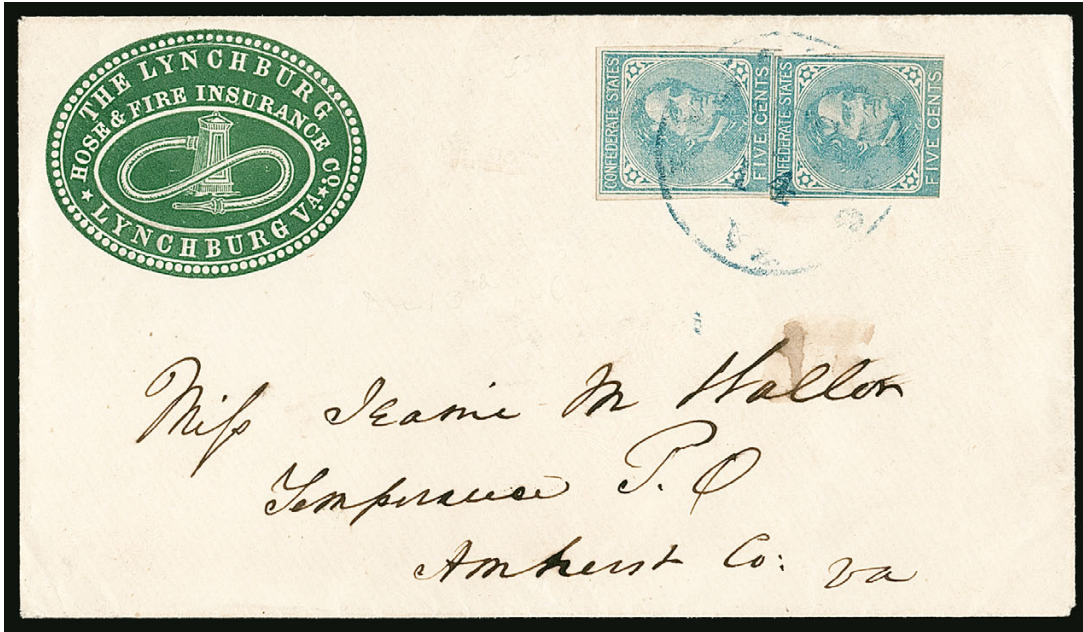 THE LYNCHBURG
HOSE & FIRE INSURANCE CO.
LYNCHBURG VA.
CONFEDERATE STATES
FIVE CENTS
CONFEDERATE STATES
FIVE CENTS
VA
Miss Jeanie M Hallor
Temperance P. O
Amherst Co: Va